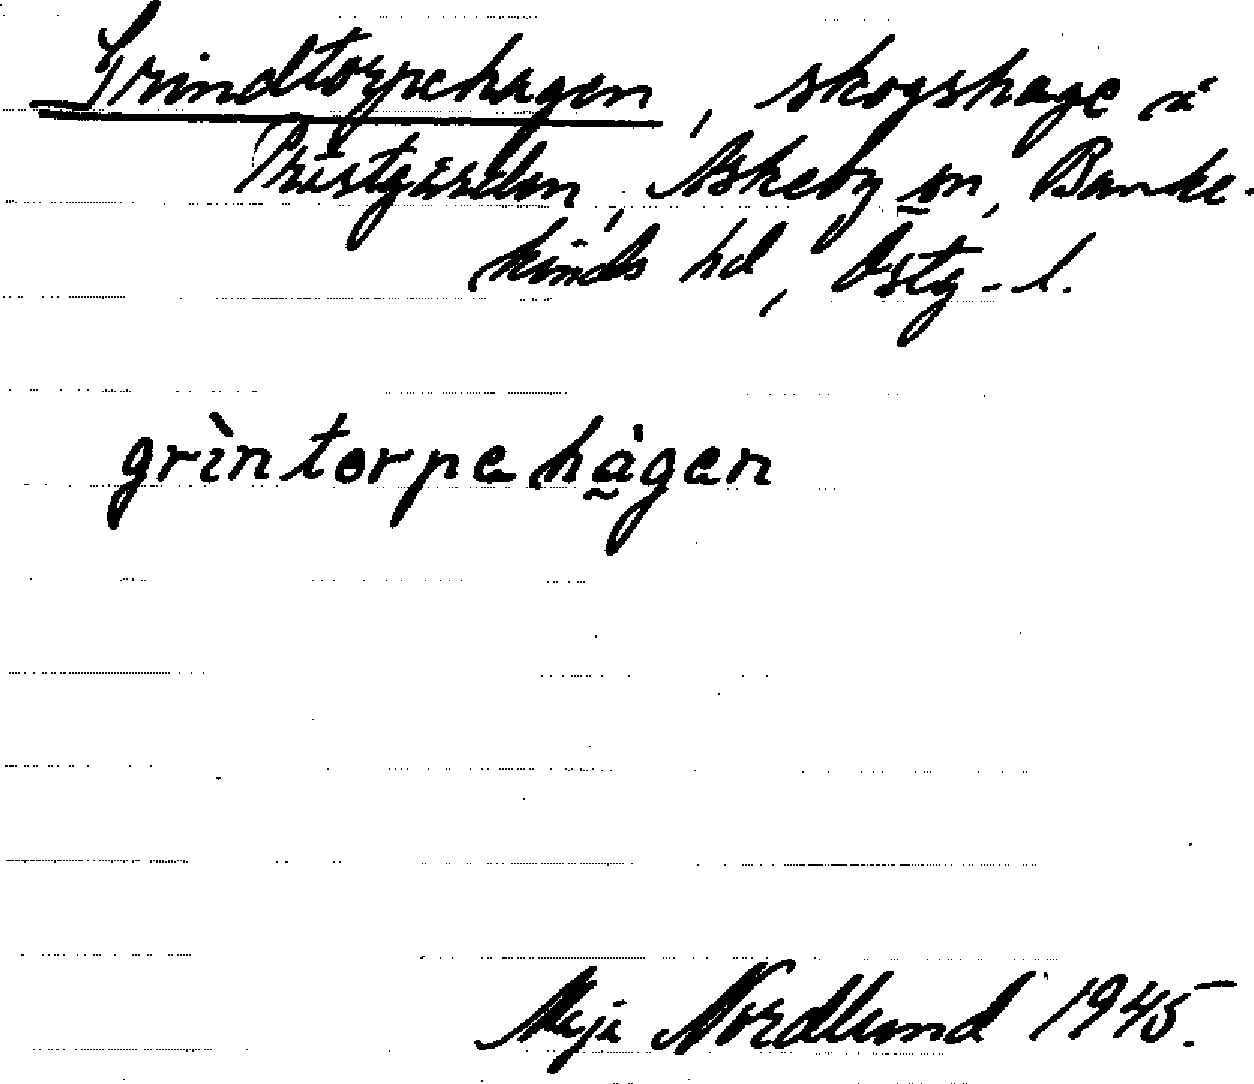 Grindtorpehagen, skogshage å
Prästgården, Askeby sn, Banke-
kinds hd, Östg-l.
grìntorpehå̰gen
Nordlund 1945.